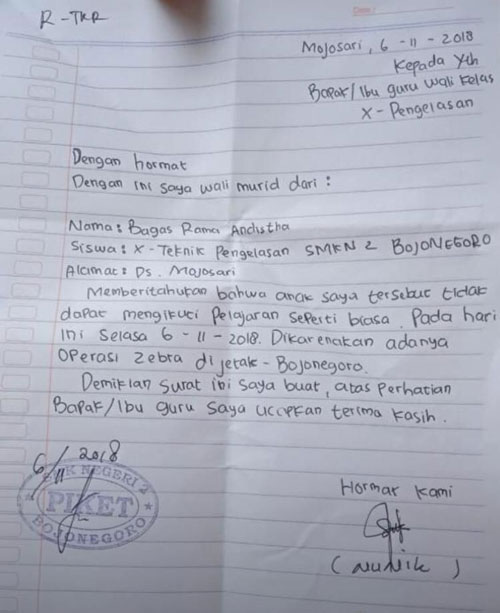 R-TKR
Mojosari, 6 - 11 - 2018
Kepada Yth
Bapak/Ibu guru wali kelas
X - Pengelasan
Dengan hormat
Dengan ini saya wali murid dari :
Nama : Bagas Rama Andistha
Siswa : X - Teknik Pengelasan SMKN 2 BOJONEGORO
Alamat : Ds. Mojosari
Memberitahukan bahwa anak saya tersebut tidak
dapat mengikuti Pelajaran seperti biasa. Pada hari
ini Selasa 6 - 11 - 2018. Dikarenakan adanya
Operasi Zebra di jetak - Bojonegoro.
Demikian surat ini saya buat, atas perhatian
Bapak/Ibu guru saya ucapkan terima kasih.
6/11 2018
SMK NEGERI 2
PIKET
BOJONEGORO
Hormat Kami
(NUNIK)